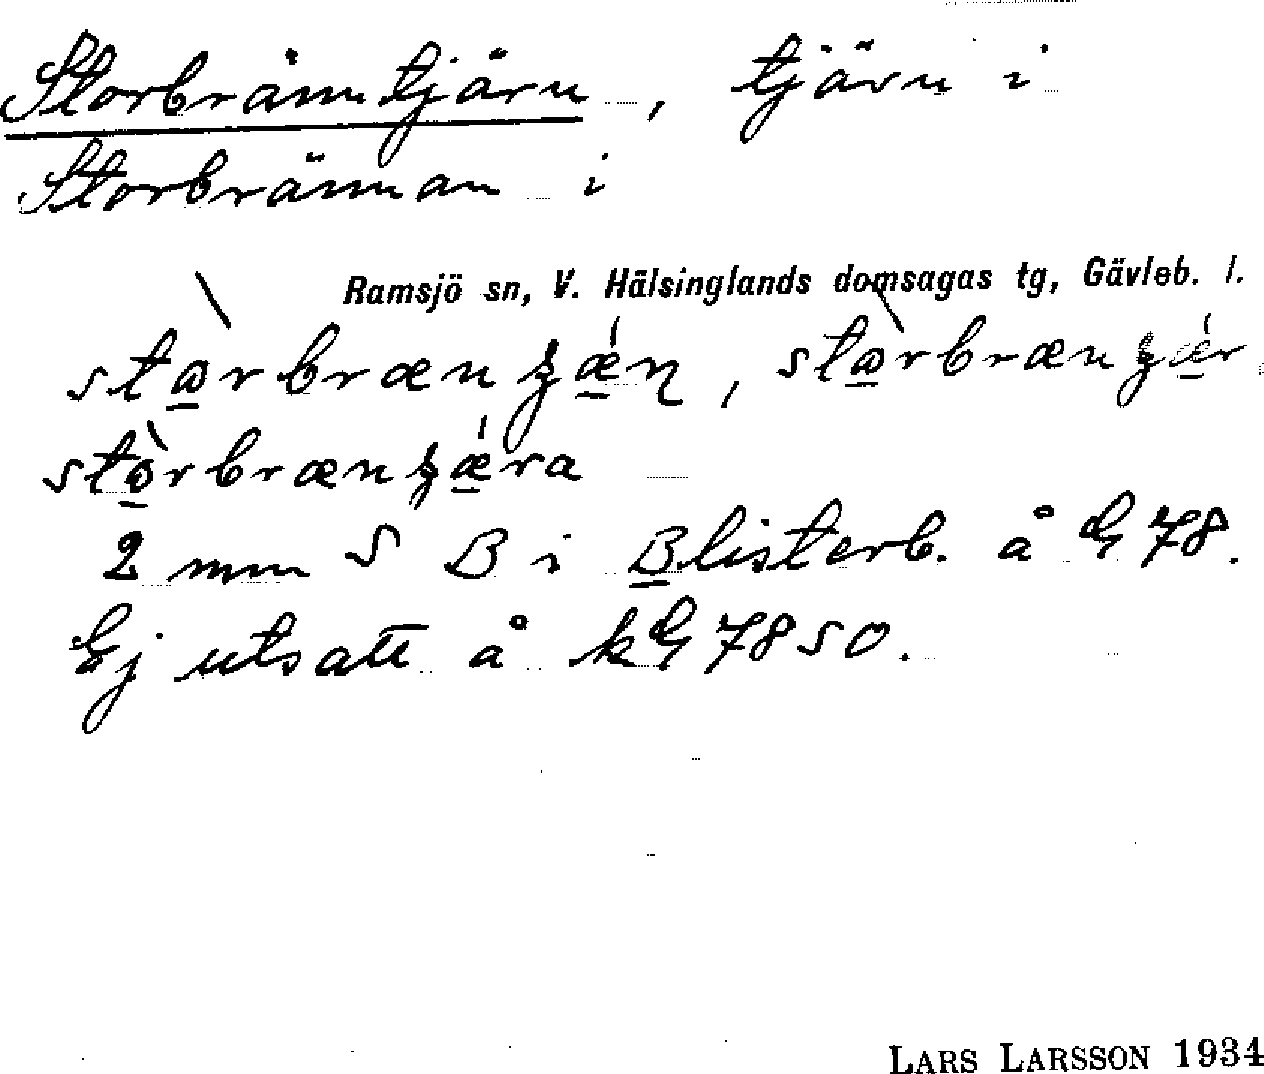 Storbränntjärn, tjärn i
Storbrännan i
Ramsjö sn, V. Hälsinglands domsagas tg, Gävleb. l.
2 mm S B i Blisterb. å G 78.
Ej utsatt å kG 7850.
LARS LARSSON 1934